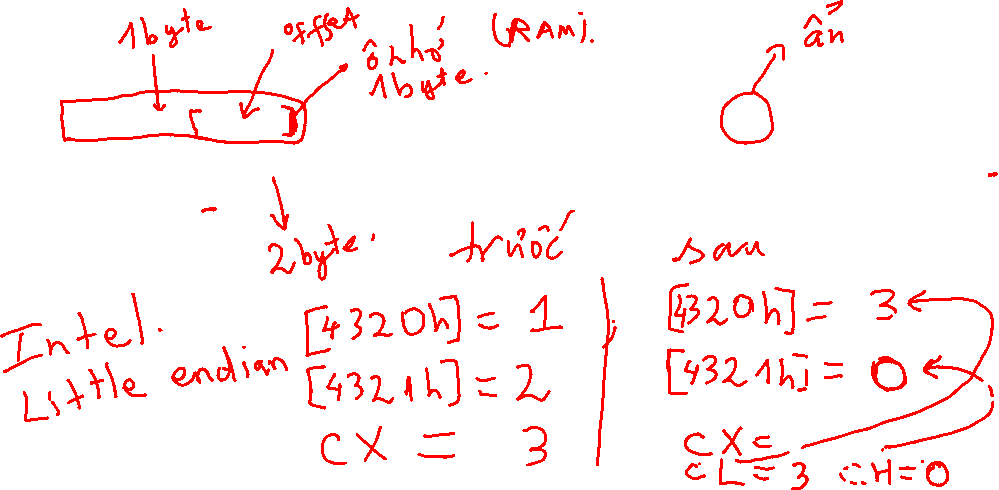 1byte
offset
ô nhớ (RAM).
1byte.
ẩn
2byte.
trước
sau
Intel.
Little endian
[4320h] = 1
[4321h] = 2
CX = 3
[4320h] = 3
[4321h] = 0
CX =
CL = 3 CH = 0